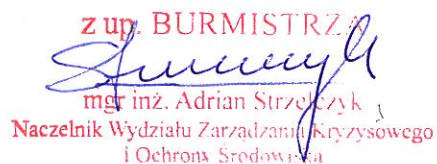 z up. BURMISTRZA
mgr inż. Adrian Strzelczyk
Naczelnik Wydziału Zarządzania Kryzysowego
i Ochrony Środowiska